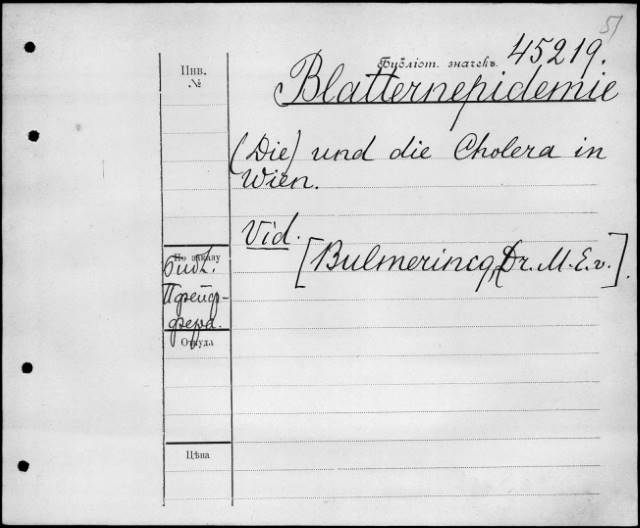 51
Инв.
№
Библіот. значекъ. 45219.
Blatternepidemie
(Die) und die Cholera in
Wien.
Vid.
[Bulmerincq, Dr. M. E. v.].
По заказу
Библ.
Пфейф-
фера.
Откуда
Цѣна